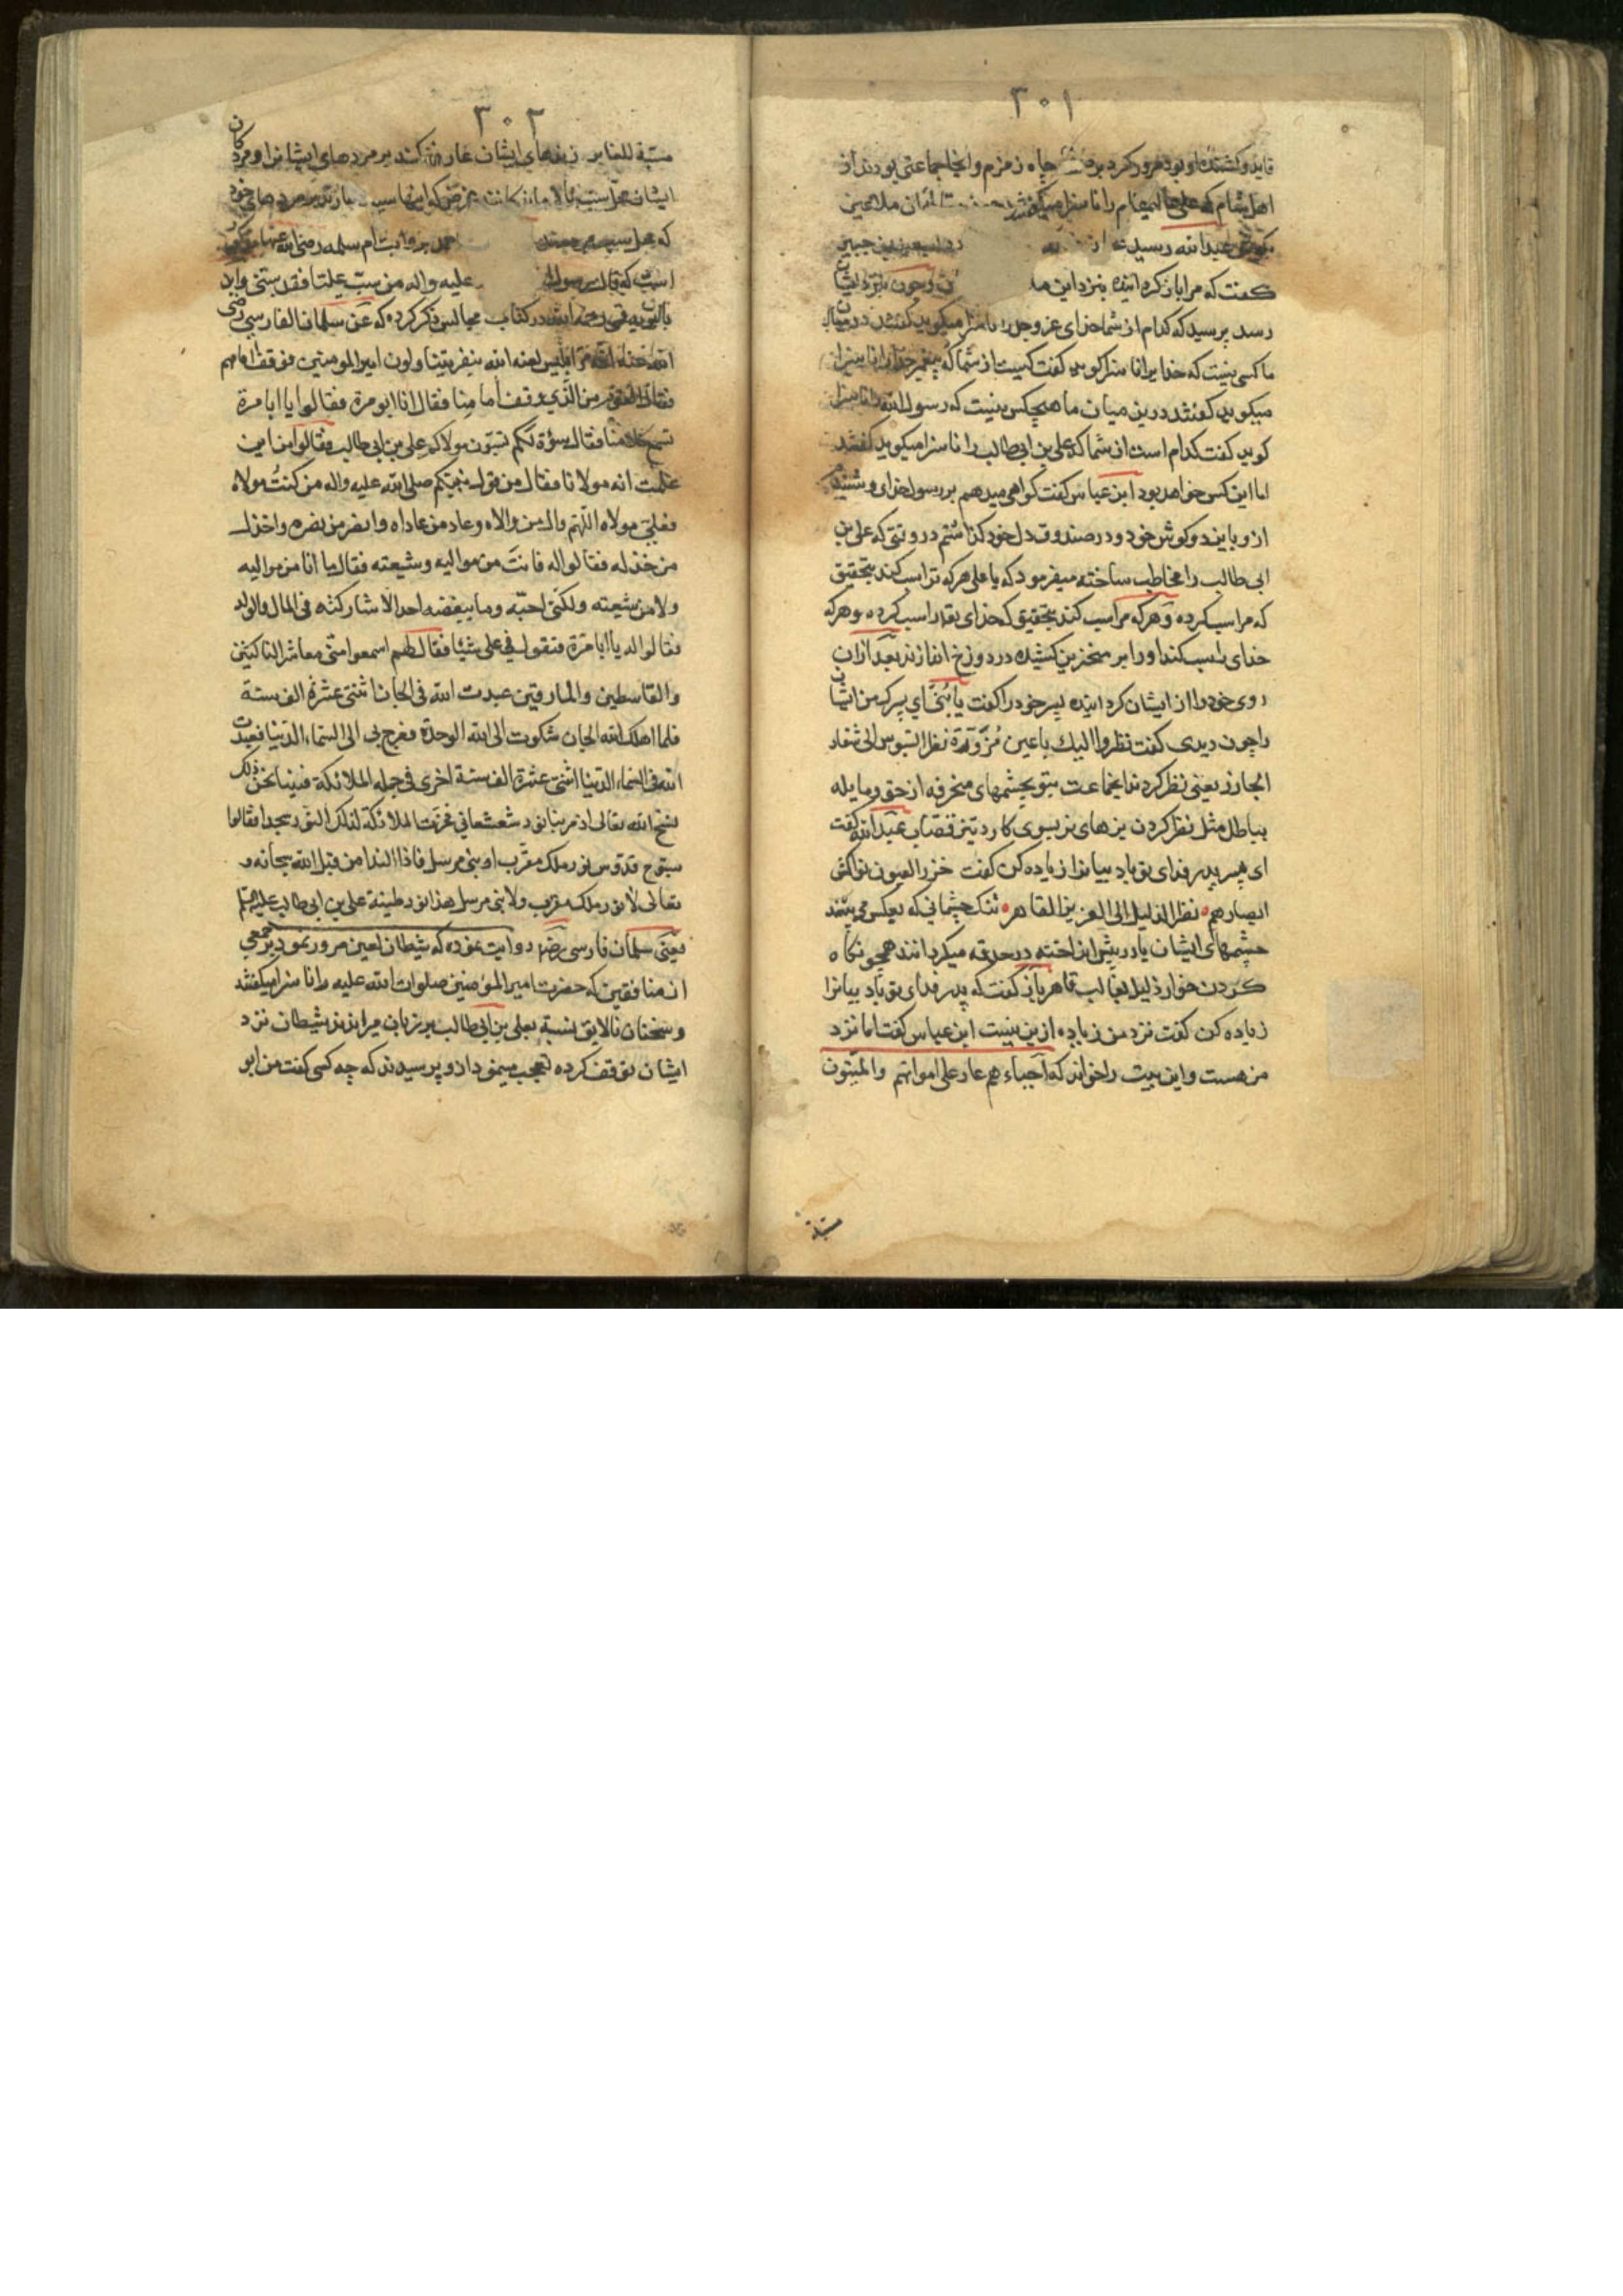 ۳۰۱
قاید و کشنده او بود مرور کرد بر چاه زمزم و آنجا جماعتی بودند از
اهل شام که علی علیه السلام را ناسزا میکفتند آن ملاعین
بکوش عبدالله رسید سعید بن جبیر
کفت که مرا باز کردانیده بنزد این چون بنزد ایشان
رسد پرسید که کدام از شما خدای عز و جل را ناسزا میکوید کفتند در میان
ما کسی نیست که خدایرا ناسزا کوید کفت کیست از شما که پیغمبر خدا را ناسزا
میکوید کفتند درین میان ما هیچکس نیست که رسول الله را ناسزا
کوید کفت کدام است از شما که علی بن ابی طالب را ناسزا میکوید کفتند
اما این کس خواهد بود ابن عباس کفت کواهی میدهم بر رسول خدای و شنیدم
ازو باین دو کوش خود و در صندوق دل خود کذاشتم در وقتی که علی بن
ابی طالب را مخاطب ساخته میفرمود که یا علی هر که ترا سب کند بتحقیق
که مرا سب کرده و هر که مرا سب کند بتحقیق که خدای تعالی را سب کرده و هر که
خدای را سب کند او را بر منخرین کشیده در دوزخ اندازند بعد از ان
روی خود را از ایشان کردانیده پسر خود را کفت یا بُنَیّ ای پسرک من ایشان
را چون دیدی کفت نظروا الیک باعین مُزْوَرّة نظر التیوس الی شفار
الجازر یعنی نظر کردند اینجماعت بتو بچشمهای منحرفه از حق و مایله
بباطل مثل نظر کردن بزهای نر بسوی کارد تیز قصاب عبدالله کفت
ای پسر پدر فدای تو باد بیانرا زیاده کن کفت خزر العیون نواکس
ابصارهم نظر الذلیل الی العزیز القاهر تنک چشمانی که بعکس می بینند
چشمهای ایشان یا در پیش انداخته در حدقه میکردانند همچو نکاه
کردن خوار ذلیل بغالب قاهر باز کفت که پدر فدای تو باد بیانرا
زیاده کن کفت نزد من زیاده ازین نیست ابن عباس کفت اما نزد
من هست و این بیت را خواند که احباءهم عار علی امواتهم والمیتون
مسبة
۳۰۲
مسبة للغابر زندهای ایشان عار کنند بر مردهای ایشانرا و مردکان
ایشان محل سب
که محل سب احمد بروایت ام سلمه رضی الله عنها مذکور
است که قال رسول الله علیه واله من سبّ علیّا فقد سبّنی و ابن
بابویه قمی رحمه الله در کتاب مجالس ذکر کرده که عن سلمان الفارسی رضی
الله عنه مرّ ابلیس لعنه الله بنفر یتناولون امیر المومنین فوقف امامهم
فقال القوم من الذی وقف امامنا فقال انا ابو مرة فقالوا یا ابا مرة
تسمع کلامنا فقال سوءة لکم تسبّون مولاکم علی بن ابی طالب فقالوا من این
علمت انه مولانا فقال من قول نبیکم صلی الله علیه واله من کنت مولاه
فعلیّ مولاه اللّهمّ وال من والاه و عاد من عاداه و انصر من نصره و اخذل
من خذله فقالوا له فانتَ من موالیه و شیعته فقال ما انا من موالیه
ولا من شیعته ولکنی احبّه و ما یبغضه احد الا شارکته فی المال والولد
فقالوا له یا ابا مرّة فتقول فی علی شیئا فقال لهم اسمعوا منّی معاشر الناکثین
والقاسطین والمارقین عبدت الله فی الجان اثنتی عشرة الف سنة
فلما اهلک الله الجان شکوت الی الله الوحدة فعرج بی الی السماء الدّنیا فعبدت
الله فی السماء الدّنیا اثنتی عشرة الف سنة اخری فی جمله الملائکة فبینا نحن کذلک
نسبح الله تعالی اذ مر بنا نور شعشعانی فخرّت الملائکة لذلک النور سجدا فقالوا
سبّوح قدّوس نور ملک مقرّب او نبی مرسل فاذا الندا من قبل الله سبحانه و
تعالی لا نور ملک مقرب ولا نبی مرسل هذا نور طینة علی بن ابی طالب علیه السلام
یعنی سلمان فارسی رضه روایت نموده که شیطان لعین مرور نمود بر جمعی
از منافقین که حضرت امیر المؤمنین صلوات الله علیه را ناسزا میکفتند
و سخنان نالایق نسبة بعلی بن ابی طالب بر زبان میراندند شیطان نزد
ایشان توقف کرده تعجب مینمود ازو پرسیدند که چه کسی کفت من ابو